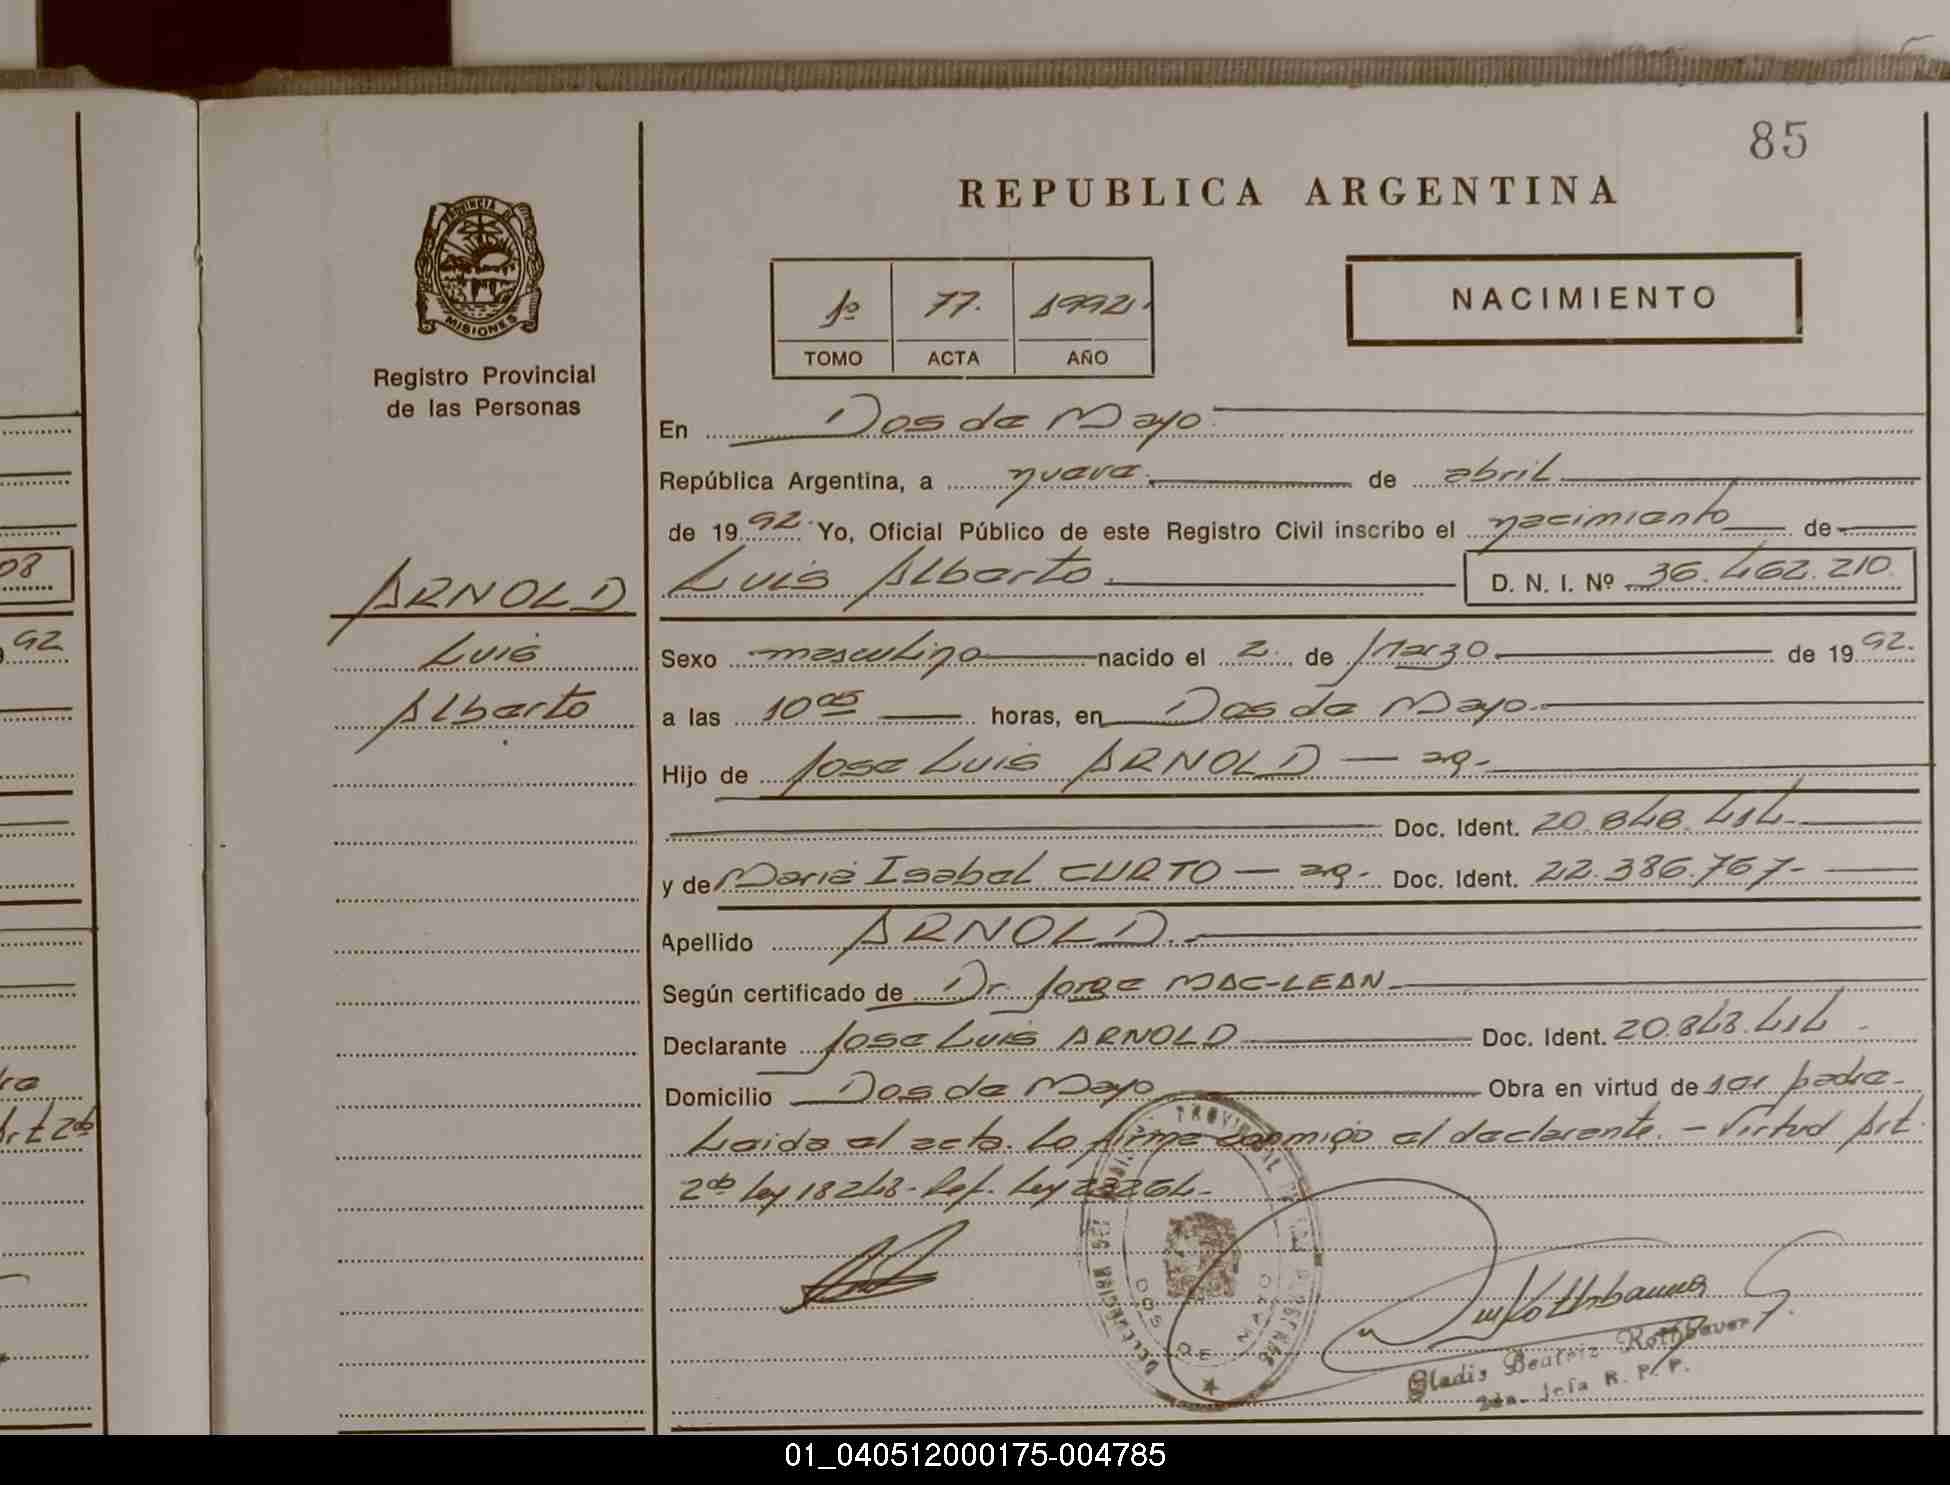 85
REPUBLICA ARGENTINA
PROVINCIA DE
MISIONES
Registro Provincial
de las Personas
1º 77. 1992.
TOMO ACTA AÑO
NACIMIENTO
En Dos de Mayo.
República Argentina, a nueve. de abril
de 1992. Yo, Oficial Público de este Registro Civil inscribo el nacimiento de
Luis Alberto. D. N. I. Nº 36.462.210.
ARNOLD
Luis
Alberto
Sexo masculino nacido el 2. de Marzo. de 1992.
a las 10 05 horas, en Dos de Mayo.
Hijo de Jose Luis ARNOLD — arg.
Doc. Ident. 20.848.414.
y de Maria Isabel CURTO — arg. Doc. Ident. 22.386.767.
Apellido ARNOLD.
Según certificado de Dr. Jorge MAC-LEAN.
Declarante Jose Luis ARNOLD Doc. Ident. 20.848.414
Domicilio Dos de Mayo Obra en virtud de ser padre.
Leida el acta. La firma conmigo el declarante. - Virtud Art.
2do Ley 18248. Ref. Ley 23264.
DOS DE MAYO
Gladis Beatriz Rothbauer
2da. Jefa R. P. P.
08
92
Art 2do
01_040512000175-004785